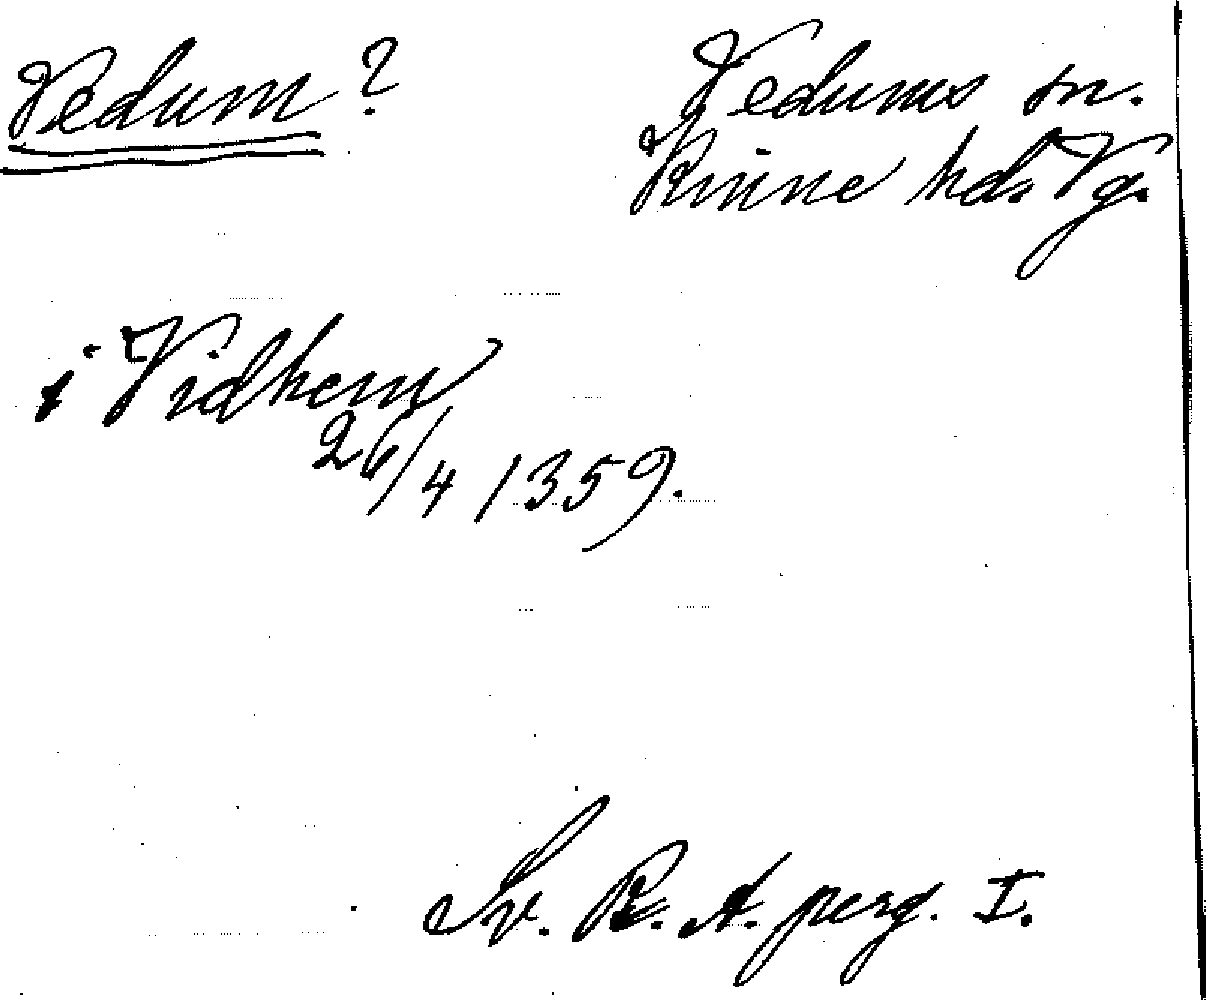 Vedum?
Vedums sn.
Kinne hd. Vg.
i Vidhem
26/4 1359.
Sv. R. A. perg. I.